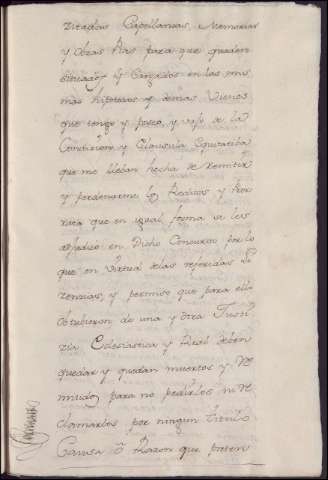 zitadas Capellanias, Memorias
y Obras Pias para que queden
situados y Cargados en las mis
mas hipotecas y demas Vienes
que tengo y poseo, y vajo de la
Condicion y Clausula
que me llevan hecha de remitir
y perdonarme los Reditos y
rata que en igual forma se les
adjudico en Dicho Concurso por lo
que en Virtud de las referidas Li
zencias, y permiso que para ello
obtubieron de una y otra Justi
zia Eclesiastica y Real deben
quedar y quedan muertos y Re
mitidos para no pedirlos ni Re
clamarlos por ningun titulo
Causa ó Razon que preten